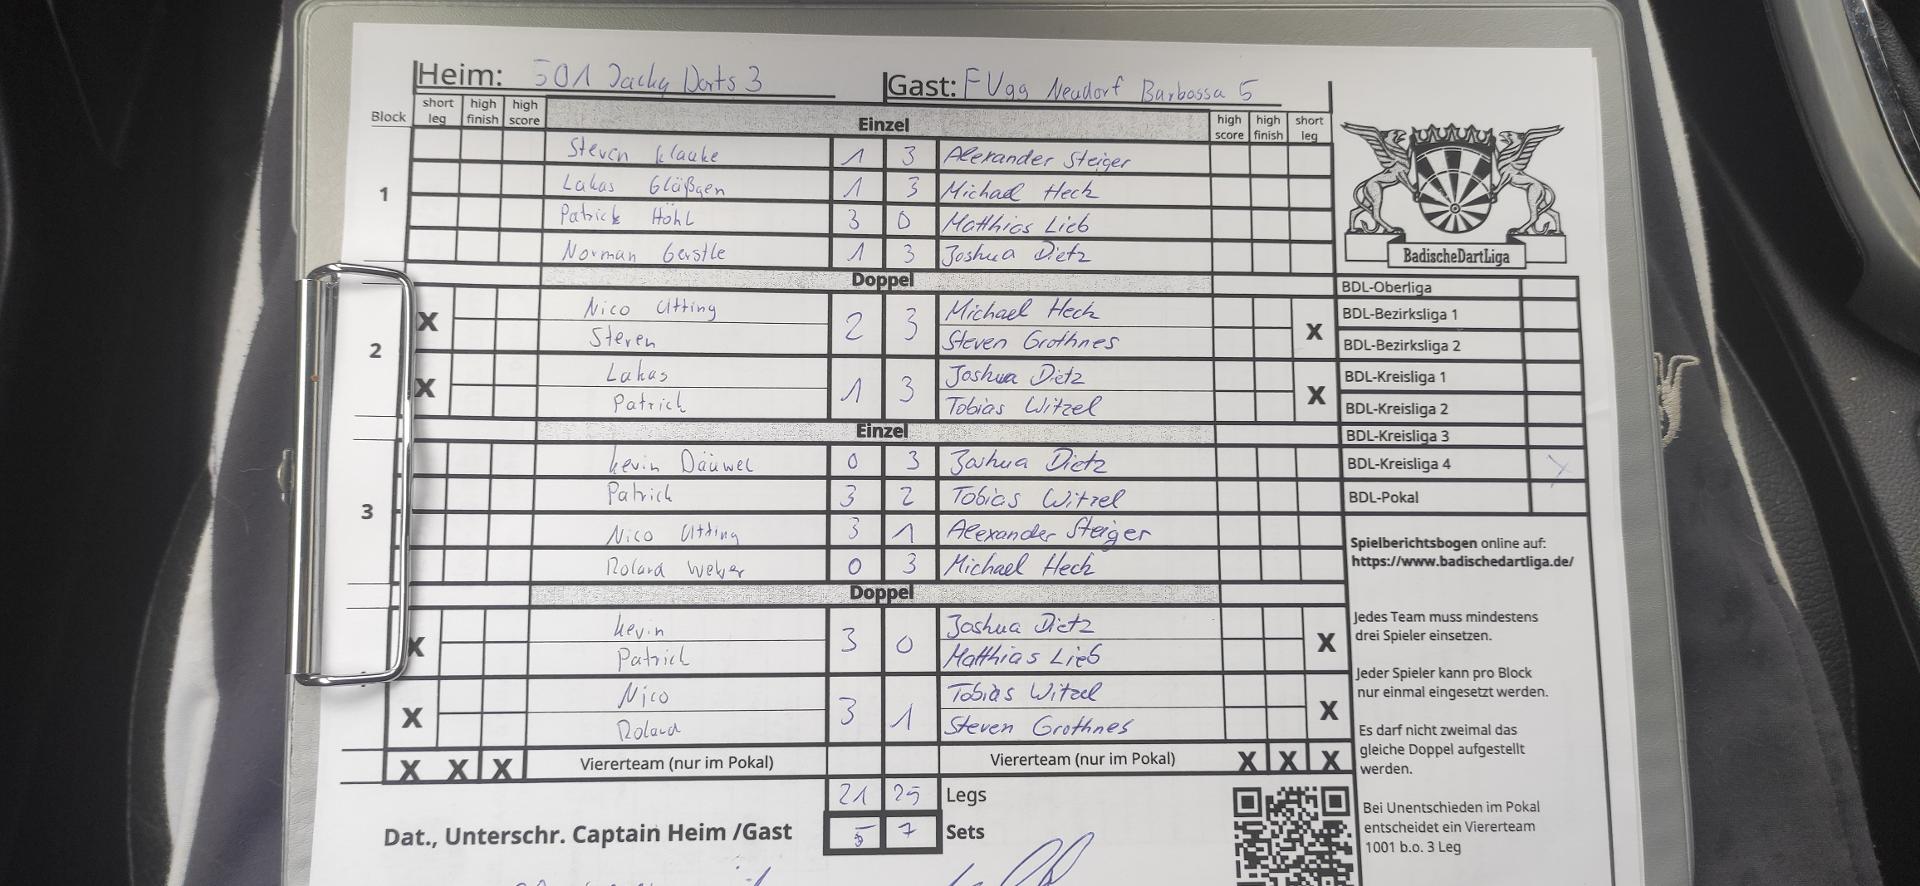 Heim: 501 Jacky Darts 3 Gast: FVgg Neudorf Barbossa 5
Block short leg high finish high score Einzel high score high finish short leg
1
Steven Klauke 1 3 Alexander Steiger
Lukas Gläßgen 1 3 Michael Heck
Patrick Höhl 3 0 Matthias Lieb
Norman Gerstle 1 3 Joshua Dietz
Doppel
2
X Nico Utting 2 3 Michael Heck X
Steven Steven Grothnes
X Lukas 1 3 Joshua Dietz X
Patrick Tobias Witzel
Einzel
3
Kevin Däuwel 0 3 Joshua Dietz
Patrick 3 2 Tobias Witzel
Nico Utting 3 1 Alexander Steiger
Roland Weber 0 3 Michael Heck
Doppel
X Kevin 3 0 Joshua Dietz X
Patrick Matthias Lieb
X Nico 3 1 Tobias Witzel X
Roland Steven Grothnes
X X X Viererteam (nur im Pokal) Viererteam (nur im Pokal) X X X
21 25 Legs
Dat., Unterschr. Captain Heim /Gast 5 7 Sets
BadischeDartLiga
BDL-Oberliga
BDL-Bezirksliga 1
BDL-Bezirksliga 2
BDL-Kreisliga 1
BDL-Kreisliga 2
BDL-Kreisliga 3
BDL-Kreisliga 4 X
BDL-Pokal
Spielberichtsbogen online auf:
https://www.badischedartliga.de/
Jedes Team muss mindestens
drei Spieler einsetzen.
Jeder Spieler kann pro Block
nur einmal eingesetzt werden.
Es darf nicht zweimal das
gleiche Doppel aufgestellt
werden.
Bei Unentschieden im Pokal
entscheidet ein Viererteam
1001 b.o. 3 Leg